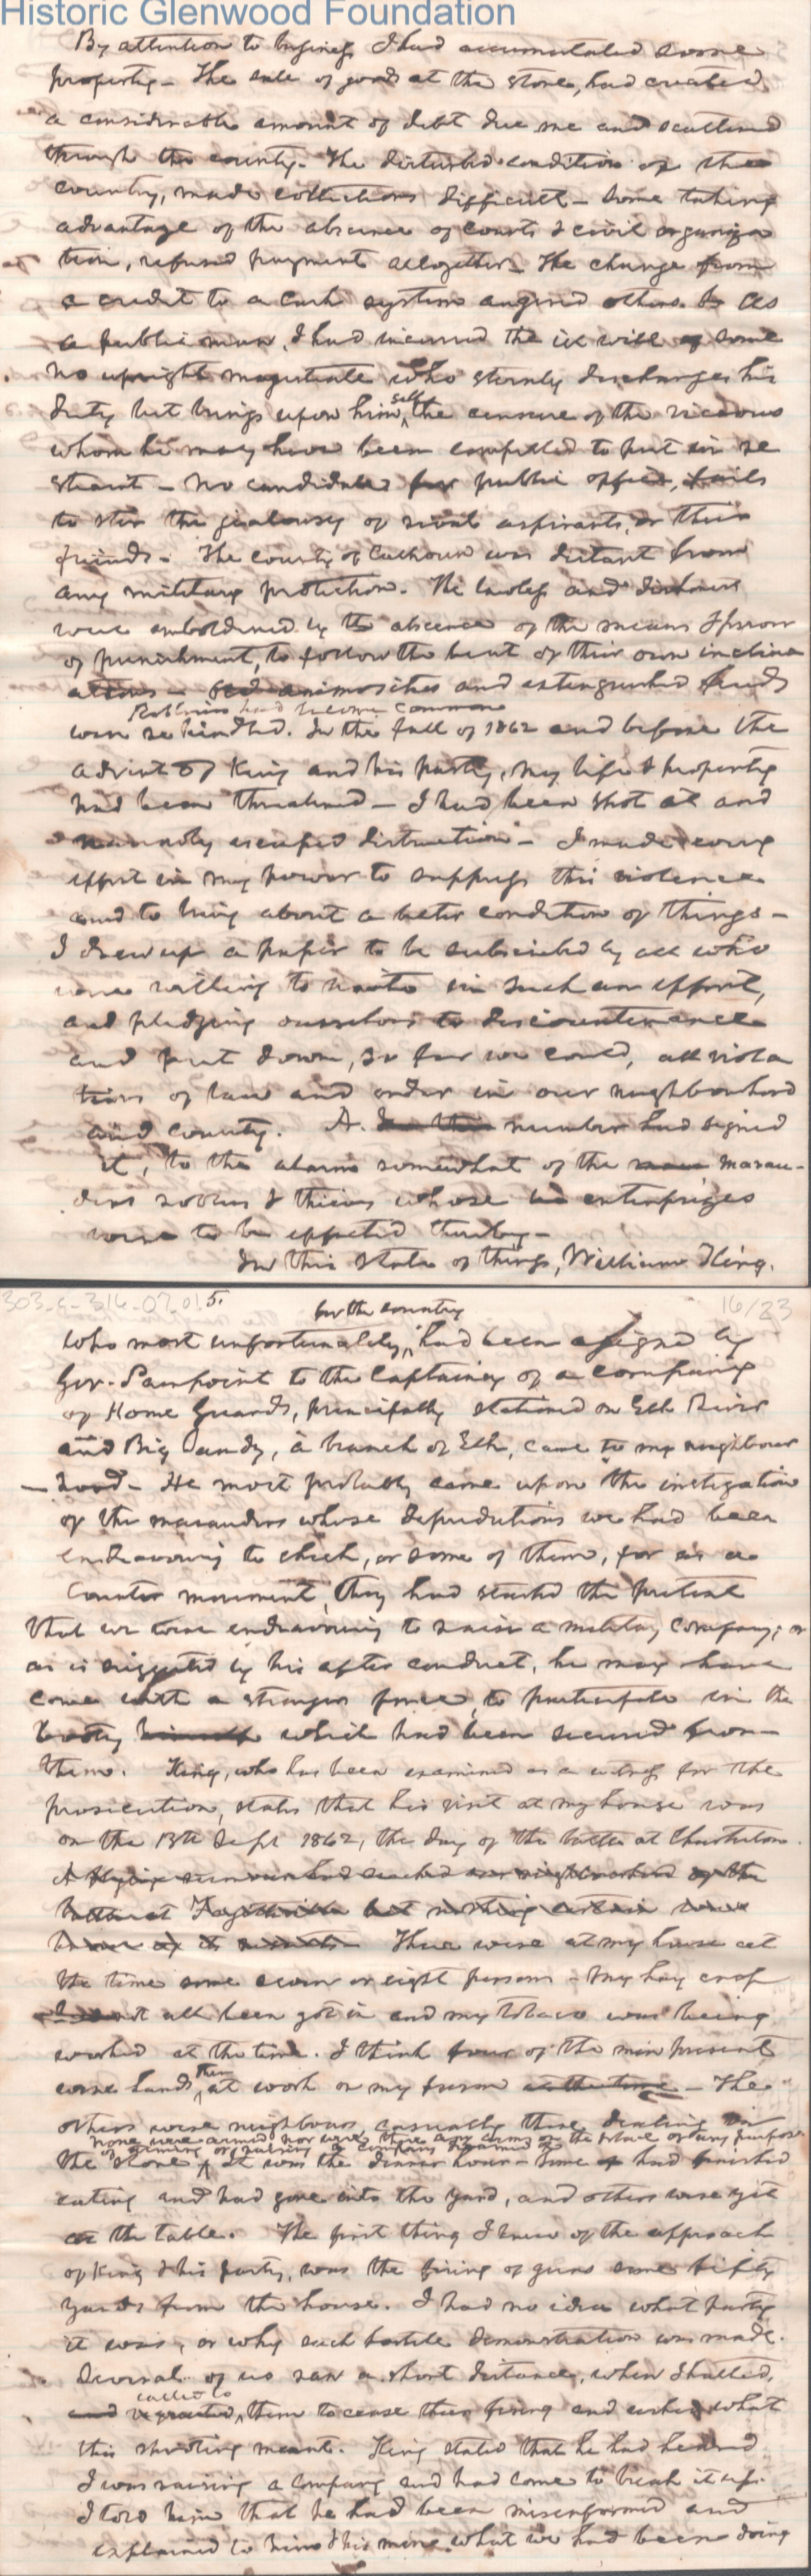 Historic Glenwood Foundation
By attention to business I had accumulated some
property - The sale of goods at the store, had created
a considerable amount of debt due me and scattered
through the county. The disturbed condition of the
country, made collections difficult - Some taking
advantage of the absence of courts & civil organiza
tion, refused payment altogether - The change from
a credit to a cash system angered others. As
a public man, I had incurred the ill will of some
No upright magistrate who sternly discharges his
duty but brings upon himself the censure of the vicious
whom he may have been compelled to put in re
straint - No candidate for public office, fails
to stir the jealousy of rival aspirants, or their
friends - The county of Calhoun was distant from
any military protection. The lawless and dishonest
were emboldened by the absence of the means & power
of punishment, to follow the bent of their own inclina
ations - Old animosities and extinguished feuds
Robberies had become common
were rekindled. In the fall of 1862 and before the
advent of King and his party, my life & property
had been threatened - I had been shot at and
narrowly escaped destruction - I made every
effort in my power to suppress this violence
and to bring about a better condition of things -
I drew up a paper to be subscribed by all who
were willing to unite in such an effort,
and pledging ourselves to discountenance
and put down, so far we could, all viola
tions of law and order in our neighbourhood
and county. A number had signed
it, to the alarm somewhat of the marau-
ders robbers & thieves whose enterprizes
were to be effected thereby -
In this state of things, William King.
303-c-316-07-015.
16/23
for the country
who most unfortunately, had been assigned by
Gov. Pierpoint to the Captaincy of a company
of Home Guards, principally stationed on Elk River
and Big Sandy, a branch of Elk, came to my neighbour
-hood - He most probably came upon the instigation
of the marauders whose depredations we had been
endeavouring to check, or some of them, for as a
counter movement, they had started the pretext
that we were endeavouring to raise a military company; or
as is suggested by his after conduct, he may have
come with a stronger force, to participate in the
booty himself which had been secured from
them. King, who has been examined as a witness for the
prosecution, states that his visit at my house was
on the 13th Sept 1862, the day of the battle at Charleston.
A flying rumour had reached our neighbourhood of the
battle at Fayetteville but nothing certain was
known of its results - There were at my house at
the time some seven or eight persons - My hay crop
had not all been got in and my tobaco was being
worked at the time. I think four of the men present
were hands then at work on my farm at the time - The
others were neighbours casually there, dealing in
None were armed nor were there any arms on the place or any purpose
of arming or raising a company dreamed of
the store. It was the dinner hour - Some had finished
eating and had gone into the yard, and others were yet
at the table. The first thing I knew of the approach
of King & his party, was the firing of guns some fifty
yards from the house. I had no idea what party
it was, or why such hostile demonstration was made.
Several of us ran a short distance, when I halted,
called to
and requested them to cease their firing and asked what
this shooting meant. King stated that he had heard
I was raising a company and had come to break it up.
I told him that he had been misinformed and
explained to him & his men what we had been doing